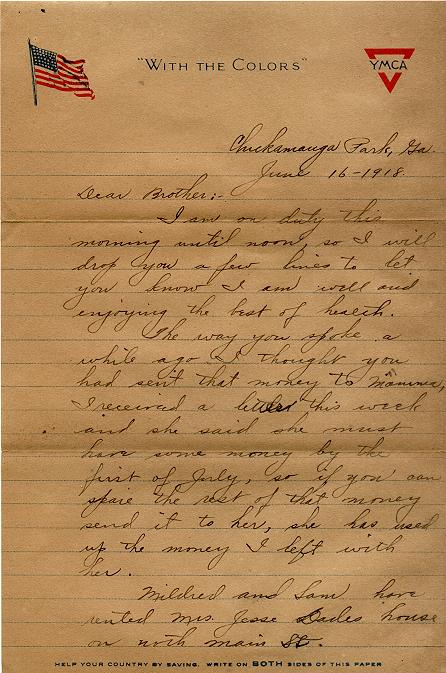 "WITH THE COLORS"
YMCA
Chickamauga Park, Ga.
June 16-1918.
Dear Brother;-
I am on duty this
morning until noon, so I will
drop you a few lines to let
you know I am well and
enjoying the best of health.
The way you spoke a
while ago I thought you
had sent that money to Mamma,
I received a letter this week
and she said she must
have some money by the
first of July, so if you can
spare the rest of that money
send it to her, she has used
up the money I left with
her.
Mildred and Sam have
rented Mrs. Jesse Dades house
on north main St.
HELP YOUR COUNTRY BY SAVING. WRITE ON BOTH SIDES OF THIS PAPER